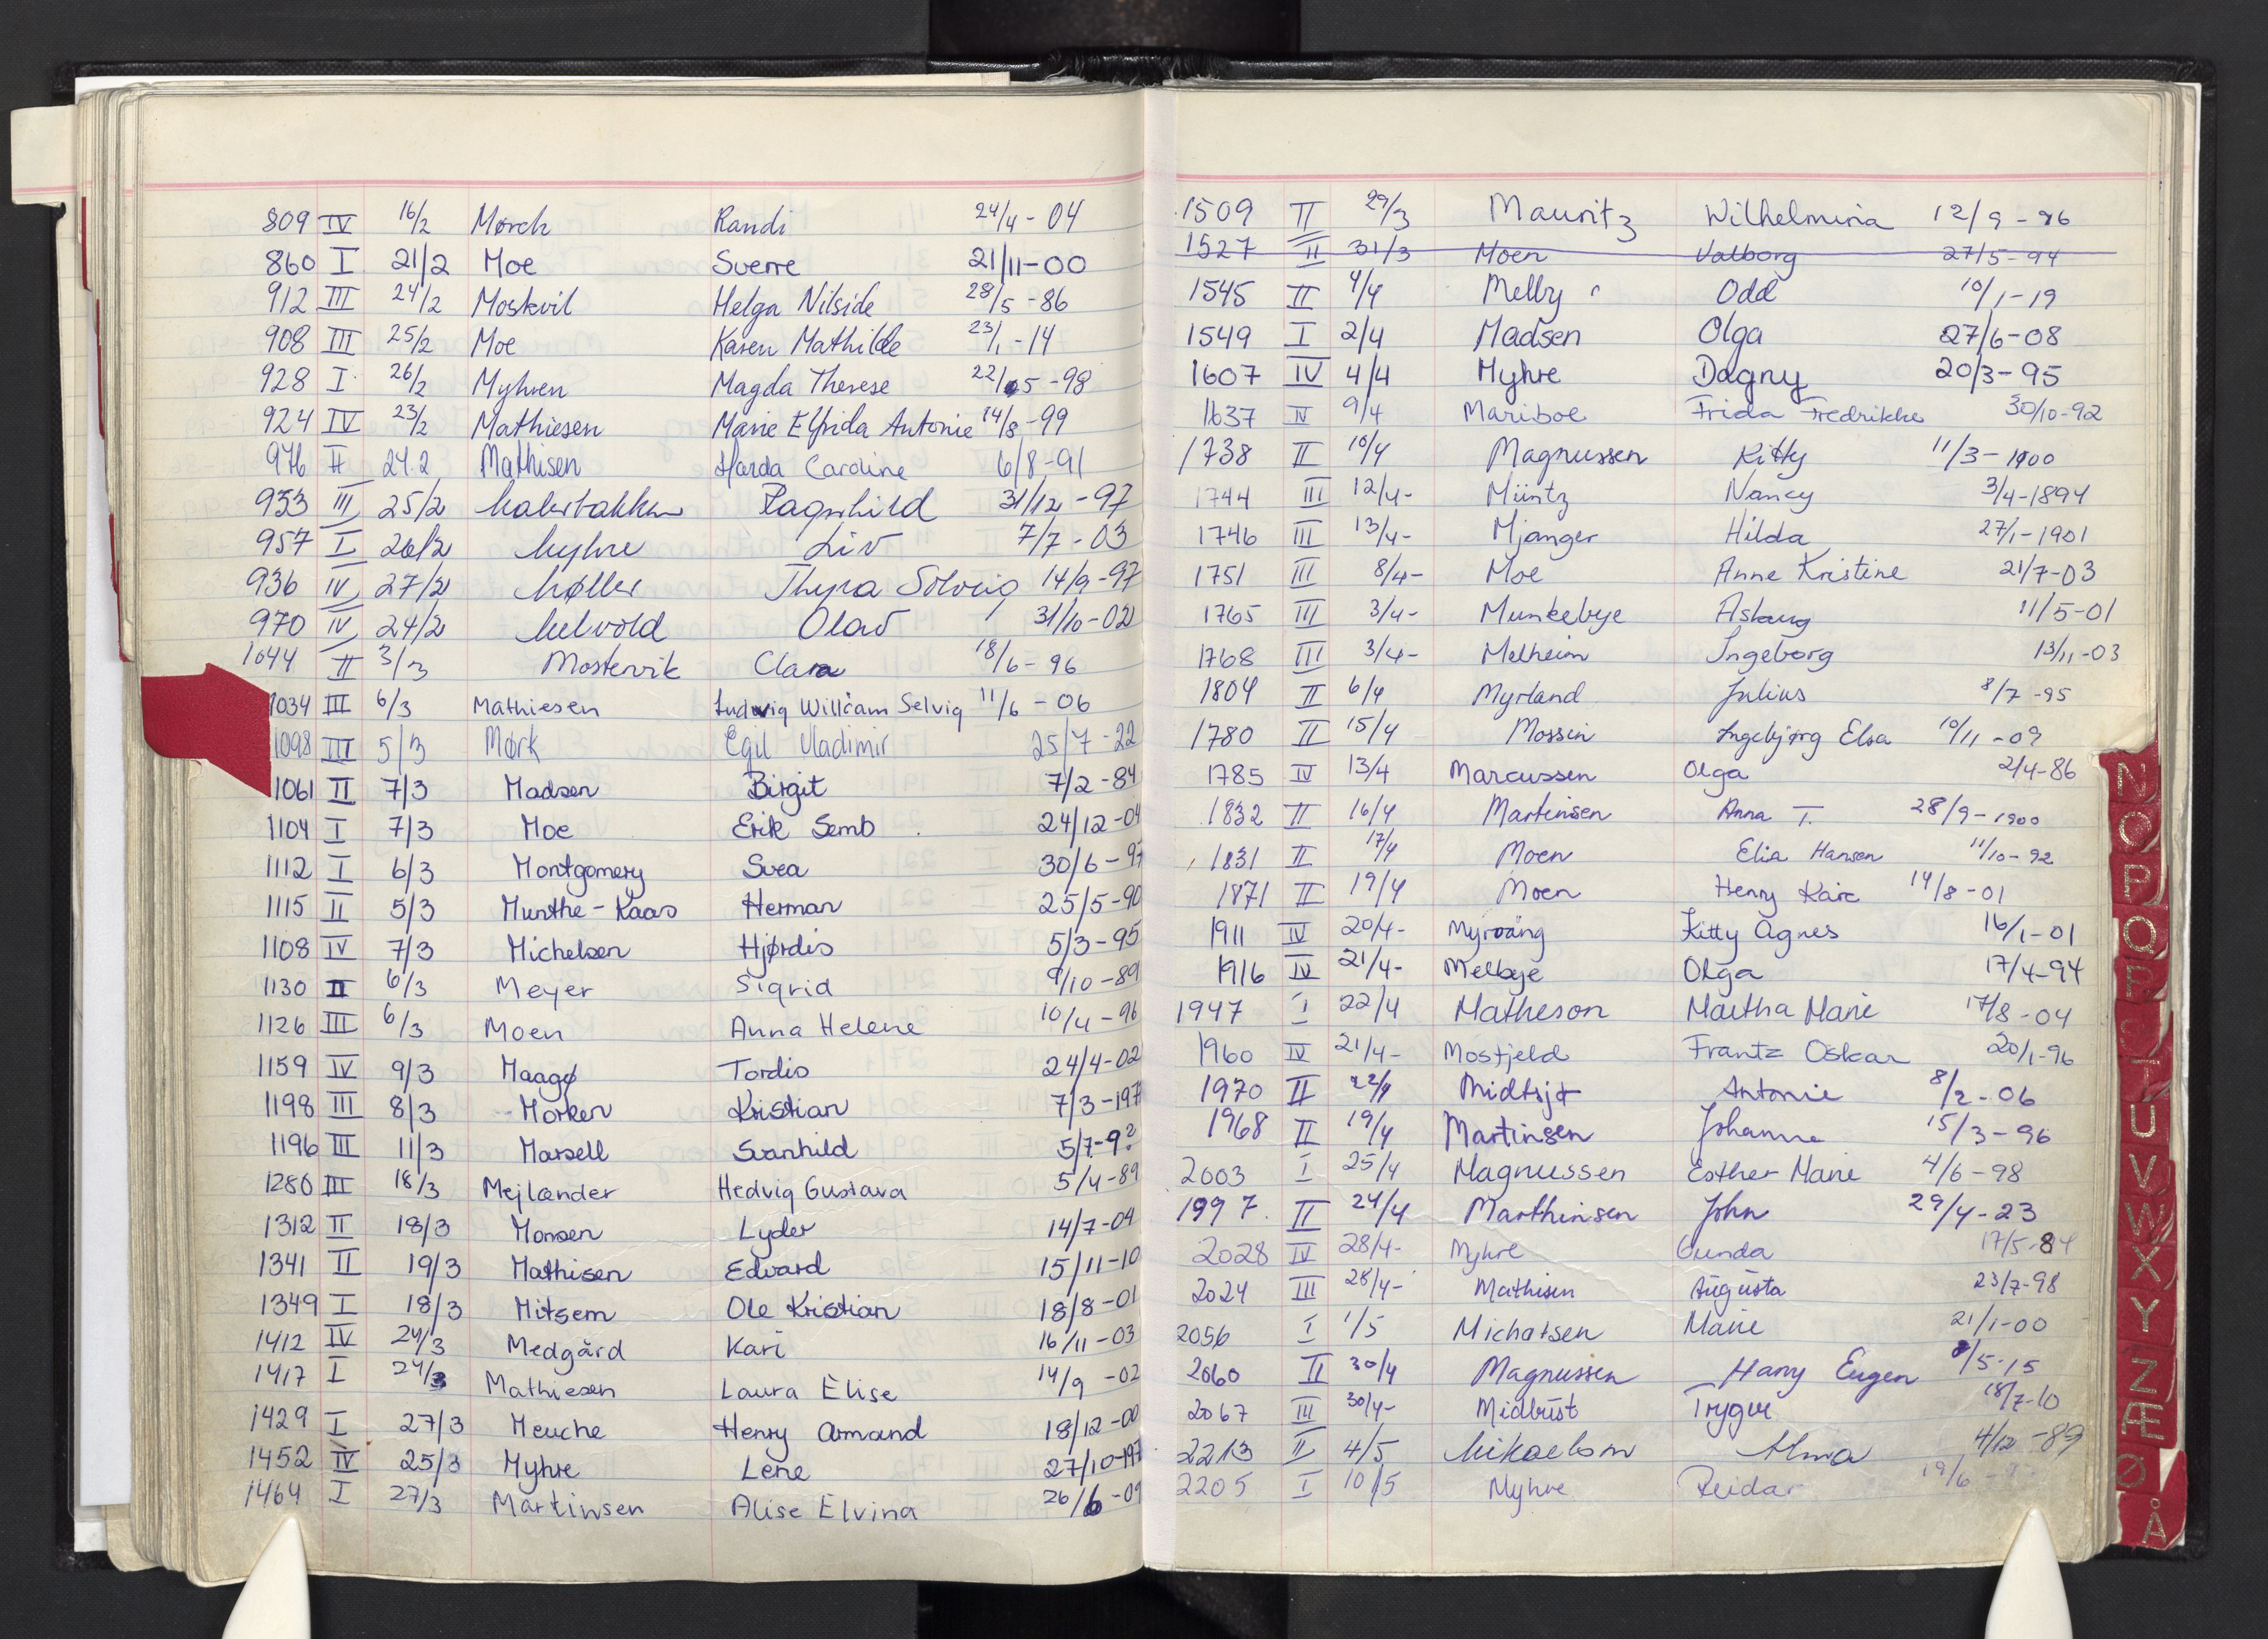 809 IV 16/2 Mørch Randi 24/4-04
860 I 21/2 Moe Sverre 21/11-00
912 III 24/2 Moskvil Helga Nilside 28/5-86
908 III 25/2 Moe Karen Mathilde 23/1-14
928 I 26/2 Myhren Magda Therese 22/5-98
924 IV 23/2 Mathiesen Marie Elfrida Antonie 14/8-99
976 II 24.2 Mathisen Harda Caroline 6/8-91
953 III 25/2 Malerbakken Ragnhild 31/12-97
957 I 26/2 Myhre Liv 7/7-03
936 IV 27/2 Møller Thyra Solveig 14/9-97
970 IV 24/2 Melvold Olav 31/10-02
1044 II 3/3 Mostervik Clara 18/6-96
1034 III 6/3 Mathiesen Ludvig William Selvig 11/6-06
1098 III 5/3 Mørk Egil Vladimir 25/7-22
1061 II 7/3 Madsen Birgit 7/2-84
1104 I 7/3 Moe Erik Semb 24/12-04
1112 I 6/3 Montgomery Svea 30/6-97
1115 II 5/3 Munthe-Kaas Herman 25/5-90
1108 IV 7/3 Michelsen Hjørdis 5/3-95
1130 II 6/3 Meyer Sigrid 9/10-89
1126 III 6/3 Moen Anna Helene 10/4-96
1159 IV 9/3 Maagø Tordis 24/4-02
1198 III 8/3 Morken Kristian 7/3-197
1196 III 11/3 Marsell Svanhild 5/7-9?
1280 III 18/3 Mejlænder Hedvig Gustava 5/4-89
1312 II 18/3 Monsen Lyder 14/7-04
1341 II 19/3 Mathisen Edvard 15/11-10
1349 I 18/3 Mitsem Ole Kristian 18/8-01
1412 IV 24/3 Medgård Kari 16/11-03
1417 I 24/3 Mathiesen Laura Elise 14/9-02
1429 I 27/3 Meuche Henry Armand 18/12-00
1452 IV 25/3 Myhre Lene 27/10-197
1464 I 27/3 Martinsen Alise Elvina 26/6-09
1509 II 29/3 Mauritz Wilhelmina 12/9-96
1527 II 31/3 Moen Valborg 27/5-94
1545 II 4/4 Melby Odd 10/1-19
1549 I 2/4 Madsen Olga 27/6-08
1607 IV 4/4 Myhre Dagny 20/3-95
1637 IV 9/4 Mariboe Frida Fredrikke 30/10-92
1738 II 10/4 Magnussen Kitty 11/3-1900
1744 III 12/4- Müntz Nancy 3/4-1894
1746 III 13/4- Mjanger Hilda 27/1-1901
1751 III 8/4- Moe Anne Kristine 21/7-03
1765 III 3/4- Munkebye Aslaug 11/5-01
1768 III 3/4- Melheim Ingeborg 13/11-03
1804 II 6/4 Myrland Julius 8/7-95
1780 II 15/4 Mossin Ingebjørg Elsa 10/11-09
1785 IV 13/4 Marcussen Olga 2/4-86
1832 II 16/4 Martinsen Anna T. 28/9-1900
1831 II 17/4 Moen Elia Hansen 11/10-92
1871 II 19/4 Moen Henry Kåre 14/8-01
1911 IV 20/4- Myrvang Kitty Agnes 16/1-01
1916 IV 21/4- Melbye Olga 17/4-94
1947 I 22/4 Matheson Martha Marie 17/8-04
1960 IV 21/4- Mosfjeld Frantz Oskar 20/1-96
1970 II 22/4 Midtsjø Antonie 8/2-06
1968 II 19/4 Martinsen Johanne 15/3-96
2003 I 25/4 Magnussen Esther Marie 4/6-98
1997. II 24/4 Marthinsen John 29/4-23
2028 IV 28/4- Myhre Gunda 17/5-84
2024 III 28/4- Mathisen Augusta 23/7-98
2056 I 1/5 Michalsen Marie 21/1-00
2060 II 30/4 Magnussen Harry Eugen /5-15
2067 III 30/4- Midbrøt Trygve 18/7-10
2213 II 4/5 Mikaelsen Alma 4/12-89
2205 I 10/5 Myhre Reidar 19/6-
N
O
P
Q
R
S
T
U
V
W
X
Y
Z
Æ
Ø
Å